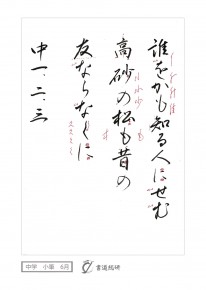 誰をかも知る人にせむ
高砂の松も昔の
友ならなくに
中一、二、三
中学 小筆 6月
書道総研